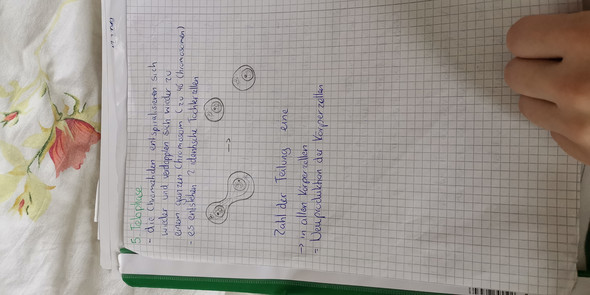 5. Telophase
- die Chromatiden entspiralisieren sich
wieder und verdoppeln sich wieder zu
einem ganzen Chromosom (zu 46 Chromosomen)
es entstehen 2 identische Tochterzellen
→
Zahl der Teilung eine
→ in allen Körperzellen
= Neuproduktion der Körperzellen